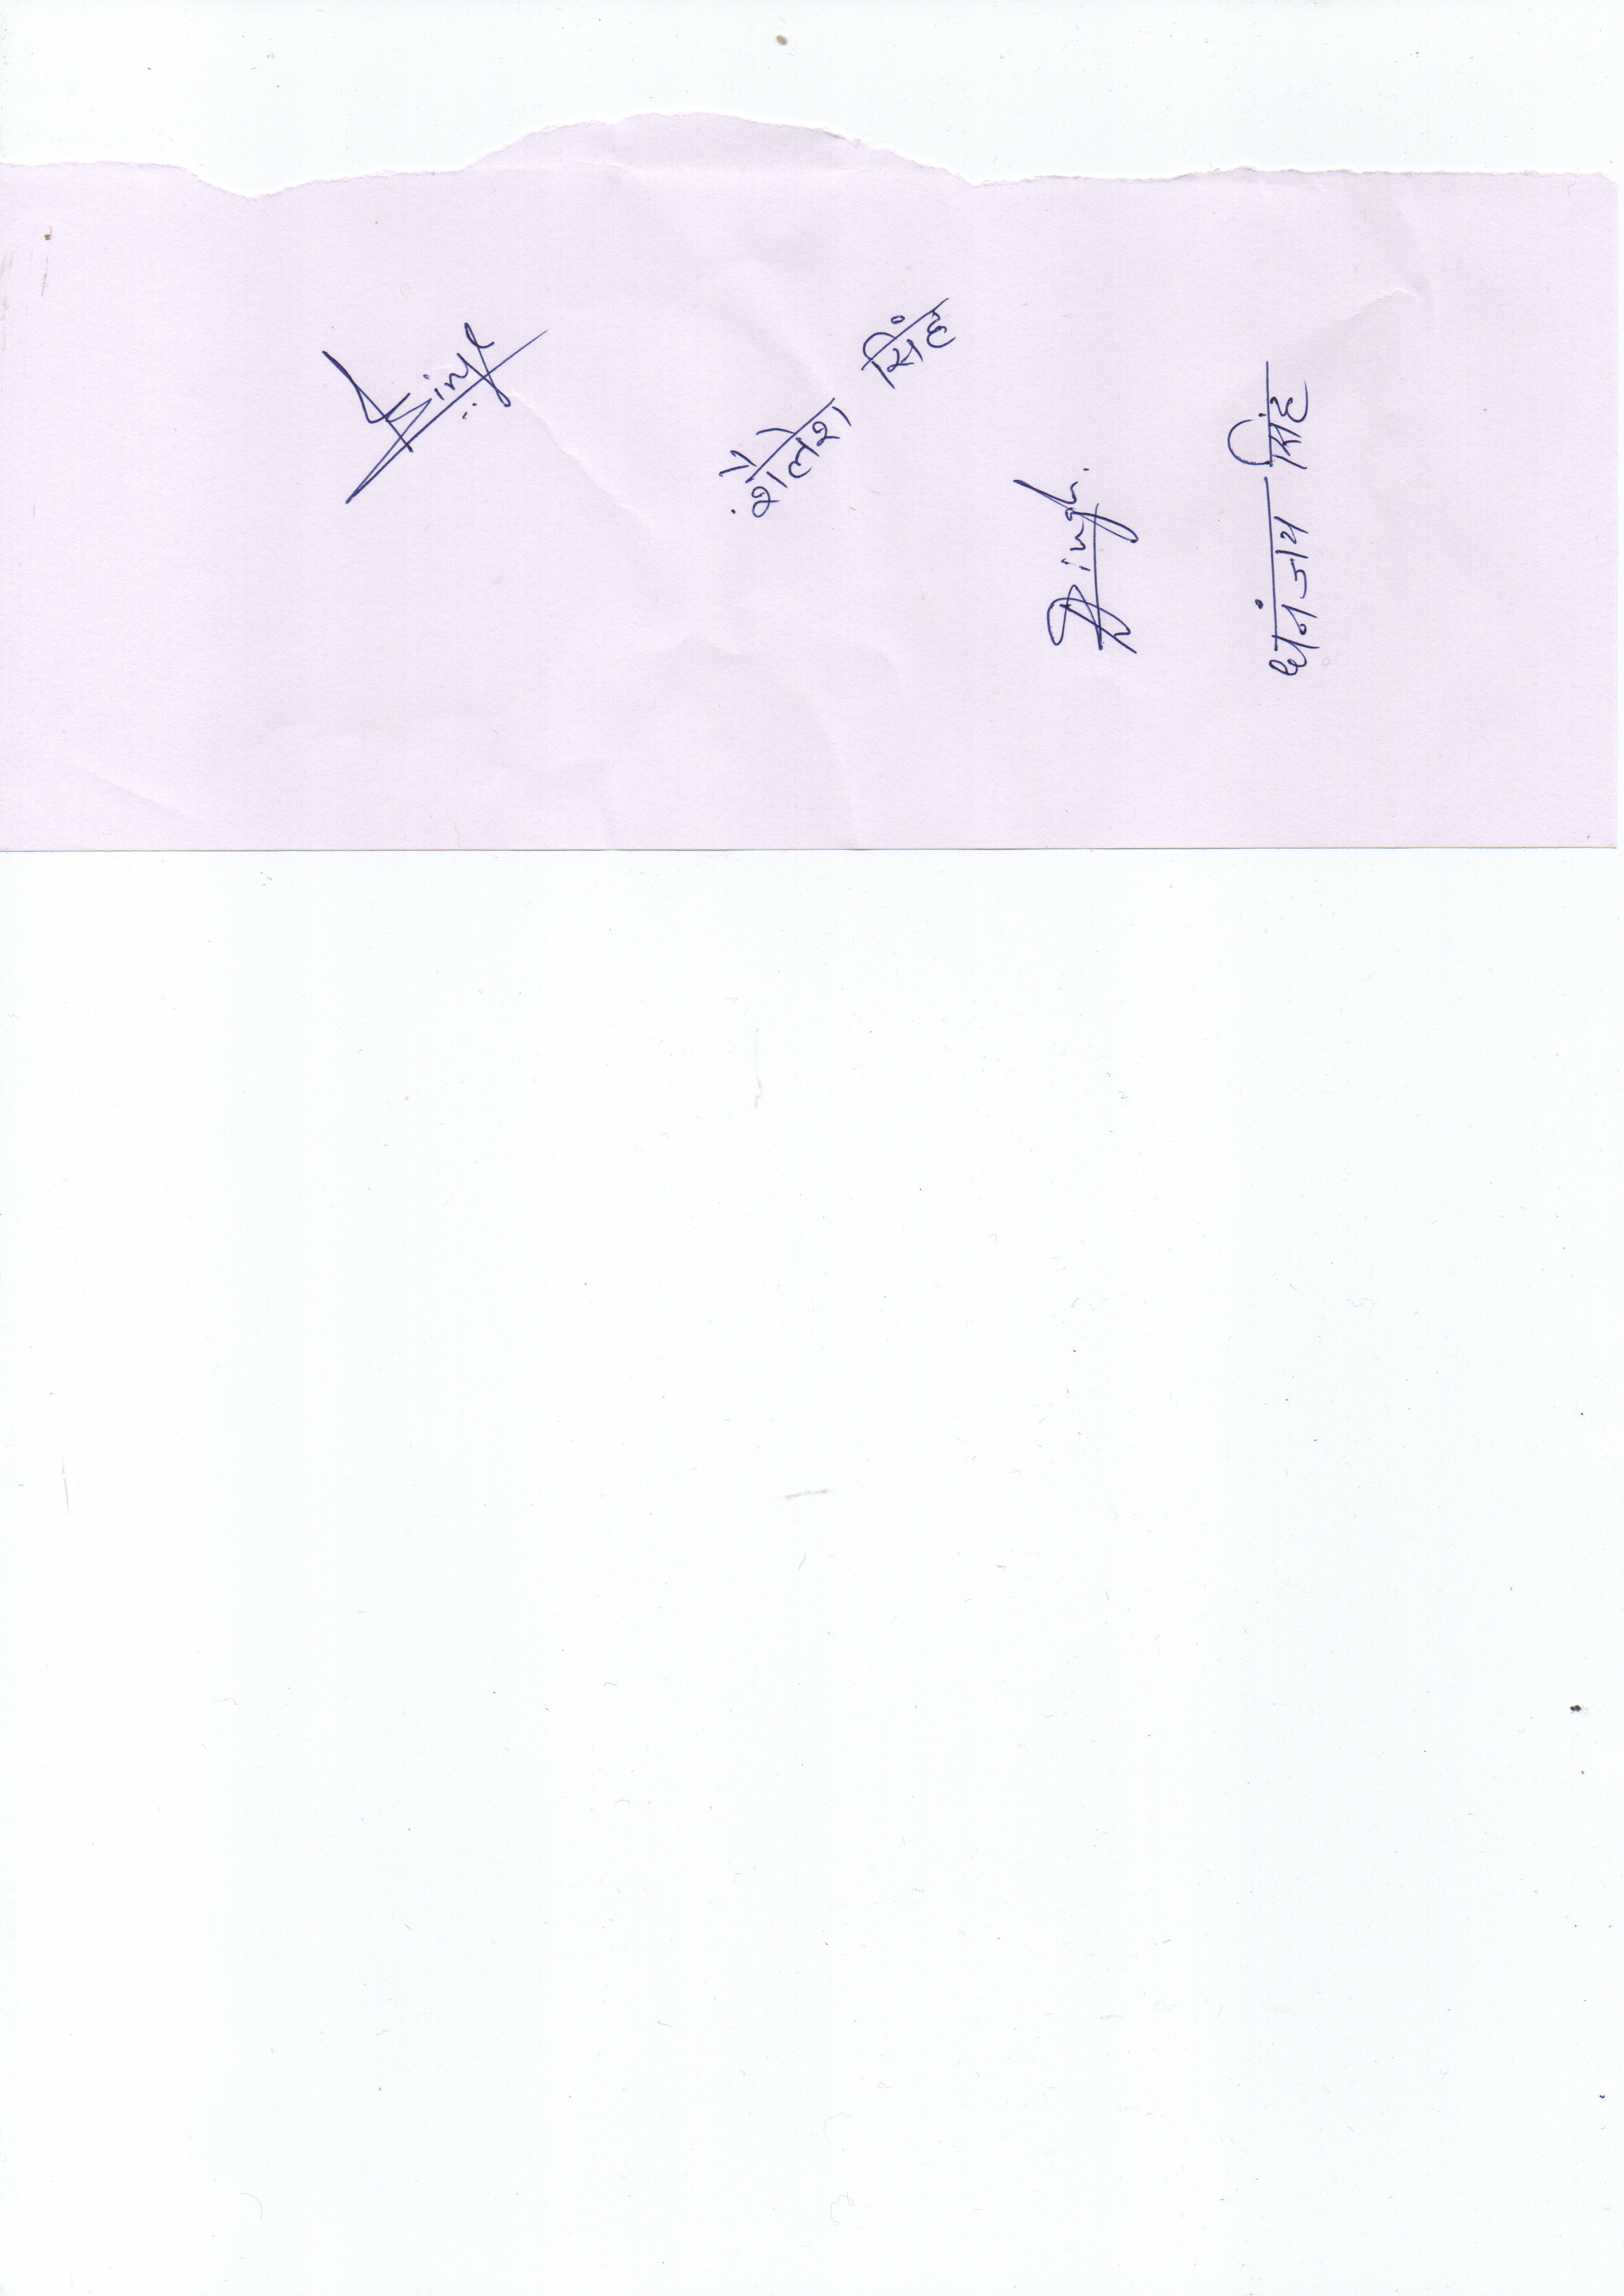 Singh
शैलेश सिंह
Singh.
धनंजय सिंह